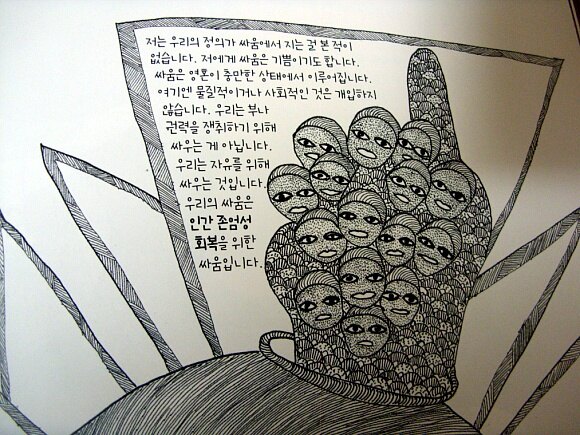 저는 우리의 정의가 싸움에서 지는 걸 본 적이
없습니다. 저에게 싸움은 기쁨이기도 합니다.
싸움은 영혼이 충만한 상태에서 이루어집니다.
여기엔 물질적이거나 사회적인 것은 개입하지
않습니다. 우리는 부나
권력을 쟁취하기 위해
싸우는 게 아닙니다.
우리는 자유를 위해
싸우는 것입니다.
우리의 싸움은
인간 존엄성
회복을 위한
싸움입니다.